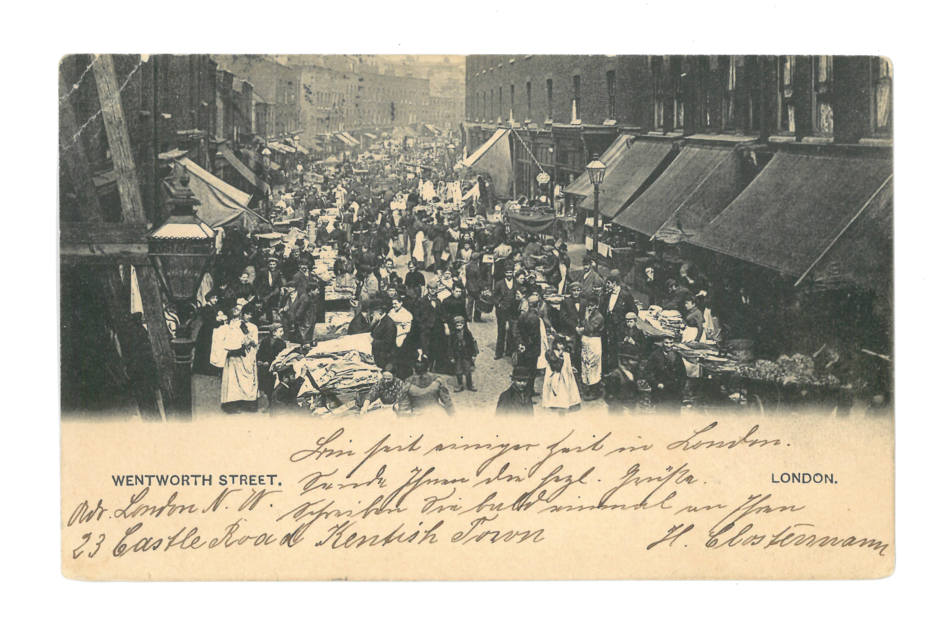 Bin seit einiger Zeit in London.
WENTWORTH STREET.
Sende Ihnen die herzl. Grüße.
LONDON.
Adr. London N. W.
Schreiben Sie bald einmal an Ihren
23 Castle Road Kentish Town
H. Clostermann